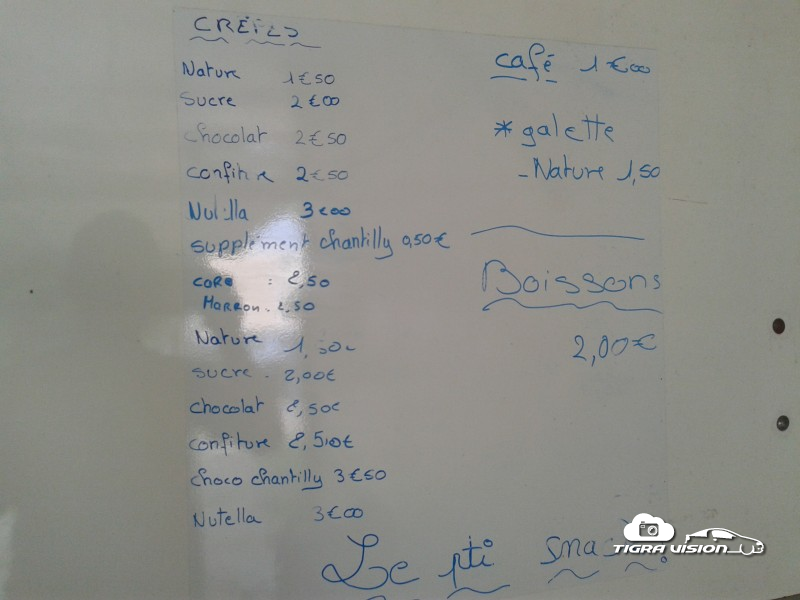 CRÊPES
Nature 1€50
Sucre 2€00
chocolat 2€50
confiture 2€50
Nutella 3€00
supplément chantilly 0,50€
COCO : 2,50
MARRON . 2,50
Nature 1,50€
sucre . 2,00€
chocolat 2,50€
confiture 2,50€
choco chantilly 3€50
Nutella 3€00
café 1€00
* galette
- Nature 1,50
Boissons
2,00€
Le pti snac
TIGRA VISION